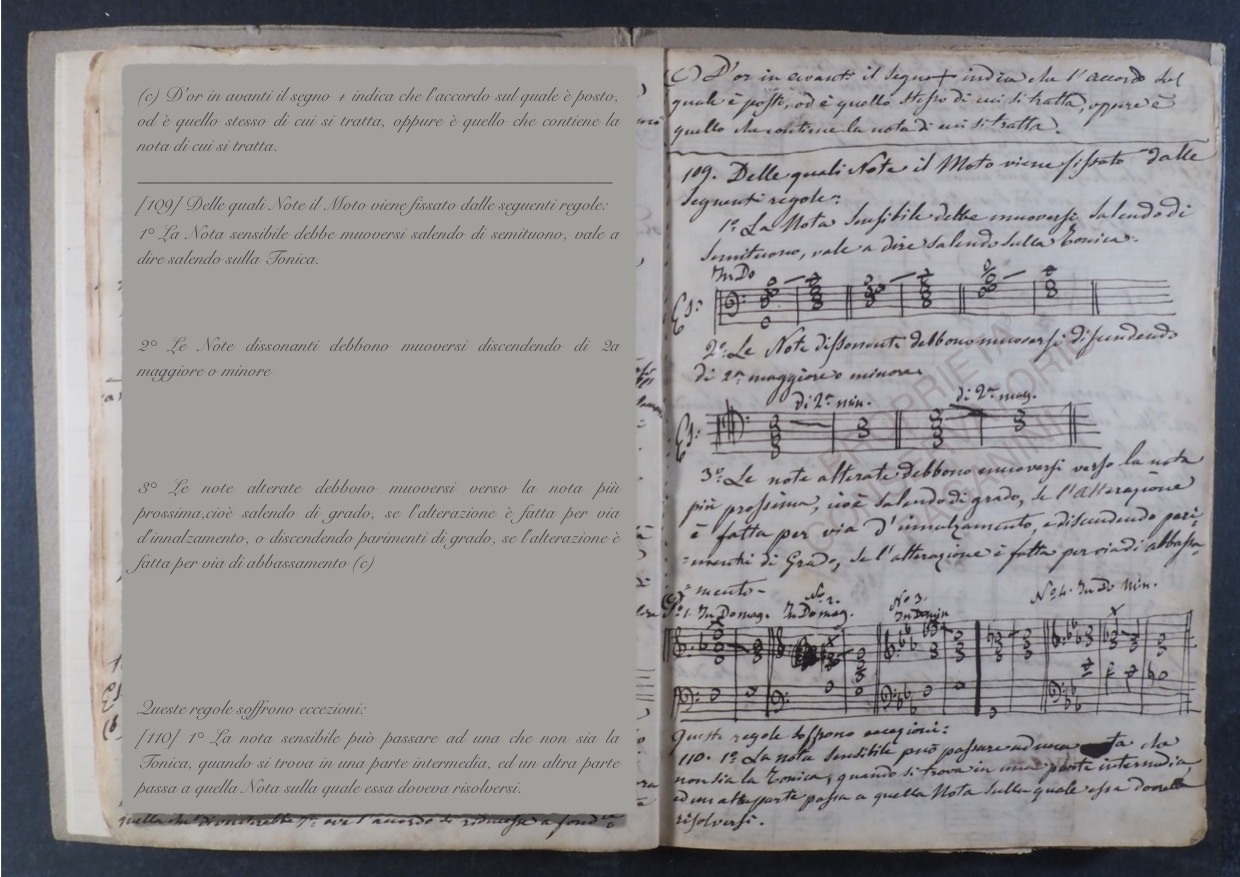 (c) D'or in avanti il segno + indica che l'accordo sul quale è posto,
od è quello stesso di cui si tratta, oppure è quello che contiene la
nota di cui si tratta.
[109] Delle quali Note il Moto viene fissato dalle seguenti regole:
1° La Nota sensibile debbe muoversi salendo di semituono, vale a
dire salendo sulla Tonica.
2° Le Note dissonanti debbono muoversi discendendo di 2a
maggiore o minore
3° Le note alterate debbono muoversi verso la nota più
prossima,cioè salendo di grado, se l'alterazione è fatta per via
d'innalzamento, o discendendo parimenti di grado, se l'alterazione è
fatta per via di abbassamento (c)
Queste regole soffrono eccezioni:
[110] 1° La nota sensibile può passare ad una che non sia la
Tonica, quando si trova in una parte intermedia, ed un altra parte
passa a quella Nota sulla quale essa doveva risolversi.
(c) D'or in avanti il segno + indica che l'accordo sul
quale è posto, od è quello stesso di cui si tratta, oppure è
quello che contiene la nota di cui si tratta.
109. Delle quali Note il Moto viene fissato dalle
seguenti regole:
1° La Nota sensibile debbe muoversi salendo di
semituono, vale a dire salendo sulla Tonica.
In Do
Es:
2° Le Note dissonanti debbono muoversi discendendo
di 2a maggiore o minore
di 2a min. di 2a mag.
Es:
3° Le note alterate debbono muoversi verso la nota
più prossima, cioè salendo di grado, se l'alterazione
è fatta per via d'innalzamento, o discendendo pari=
=menti di Grado, se l'alterazione è fatta per via di abbassa=
=mento-
1. In Do mag. No 2. In Do mag. No 3. In Do min No 4. In Do min.
Queste regole soffrono eccezioni:
110. 1° La nota sensibile può passare ad una che
non sia la Tonica, quando si trova in una parte intermedia
ed un altra parte passa a quella Nota sulla quale essa doveva
risolversi.
PROPRIETA'
CONSERVATORIO
PAGANINI